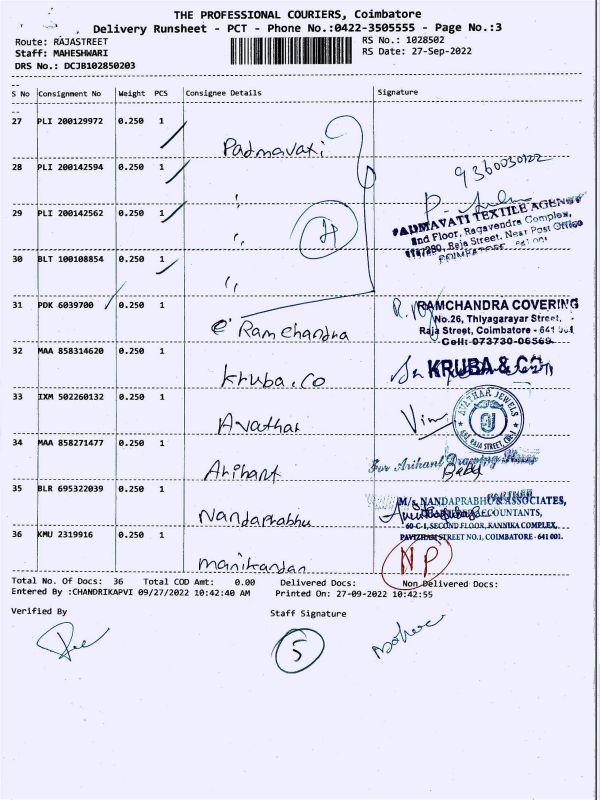 THE PROFESSIONAL COURIERS, Coimbatore
Delivery Runsheet - PCT - Phone No.:0422-3505555 - Page No.:3
Route: RAJASTREET
RS No.: 1028502
Staff: MAHESHWARI
RS Date: 27-Sep-2022
DRS No.: DCJB102850203
S No Consignment No Weight PCS Consignee Details Signature
27 PLI 200129972 0.250 1
Padmavati
28 PLI 200142594 0.250 1
9360030122
29 PLI 200142562 0.250 1
PADMAVATI TEXTILE AGENCY
2nd Floor, Ragavendra Complex,
Raja Street, Near Post Office
COIMBATORE - 641 001
30 BLT 100108854 0.250 1
31 PDK 6039700 0.250 1
Ramchandra
RAMCHANDRA COVERING
No.26, Thiyagarayar Street,
Raja Street, Coimbatore - 641 001
Cell: 073730-06569
32 MAA 858314620 0.250 1
Kruba.Co
KRUBA & CO
33 IXM 502260132 0.250 1
Avathar
AVATHAR JEWELS
RAJA STREET, CBE-1
34 MAA 858271477 0.250 1
Arihant
For Arihant
Baby
35 BLR 695322039 0.250 1
Nandaprabhu
M/s. NANDAPRABHU & ASSOCIATES,
ACCOUNTANTS,
60-C-1, SECOND FLOOR, KANNIKA COMPLEX,
PAVIZHAM STREET NO.1, COIMBATORE - 641 001.
36 KMU 2319916 0.250 1
Manikandan
NP
Total No. Of Docs: 36 Total COD Amt: 0.00 Delivered Docs: Non Delivered Docs:
Entered By :CHANDRIKAPVI 09/27/2022 10:42:40 AM Printed On: 27-09-2022 10:42:55
Verified By
Staff Signature
5